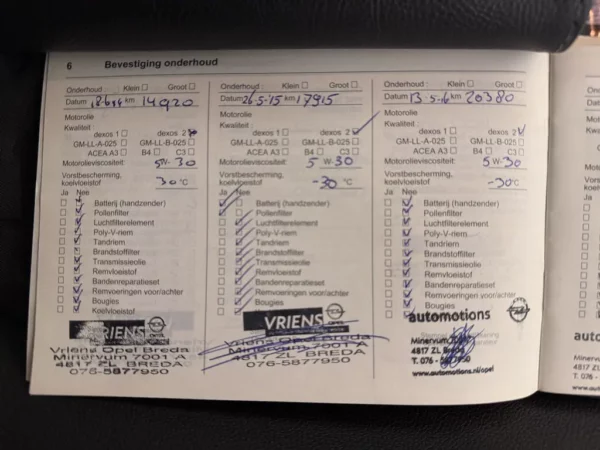 6 Bevestiging onderhoud
Onderhoud : Klein Groot
Datum 18-6-14 km 14920
Motorolie
Kwaliteit
dexos 1 dexos 2
GM-LL-A-025 GM-LL-B-025
ACEA A3 B4 C3
Motorolieviscositeit: 5W-30
Vorstbescherming,
koelvloeistof 30 °C
Ja Nee
Batterij (handzender)
Pollenfilter
Luchtfilterelement
Poly-V-riem
Tandriem
Brandstoffilter
Transmissieolie
Remvloeistof
Bandenreparatieset
Remvoeringen voor/achter
Bougies
Koelvloeistof
VRIENS
Vriens Opel Breda
Minervum 7001 A
4817 ZL BREDA
076-5877950
Onderhoud : Klein Groot
Datum 26-5-'15 km 17915
Motorolie
Kwaliteit
dexos 1 dexos 2
GM-LL-A-025 GM-LL-B-025
ACEA A3 B4 C3
Motorolieviscositeit: 5 W-30
Vorstbescherming,
koelvloeistof -30 °C
Ja Nee
Batterij (handzender)
Pollenfilter
Luchtfilterelement
Poly-V-riem
Tandriem
Brandstoffilter
Transmissieolie
Remvloeistof
Bandenreparatieset
Remvoeringen voor/achter
Bougies
VRIENS
Vriens Opel Breda
Minervum 7001 A
4817 ZL BREDA
076-5877950
Onderhoud : Klein Groot
Datum 13-5-16 km 20380
Motorolie
Kwaliteit
dexos 1 dexos 2
GM-LL-A-025 GM-LL-B-025
ACEA A3 B4 C3
Motorolieviscositeit: 5W-30
Vorstbescherming,
koelvloeistof -30°C
Ja Nee
Batterij (handzender)
Pollenfilter
Luchtfilterelement
Poly-V-riem
Tandriem
Brandstoffilter
Transmissieolie
Remvloeistof
Bandenreparatieset
Remvoeringen voor/achter
Bougies
automotions
Minervum
4817 ZL Breda
T. 076 - 7950
www.automotions.nl/opel